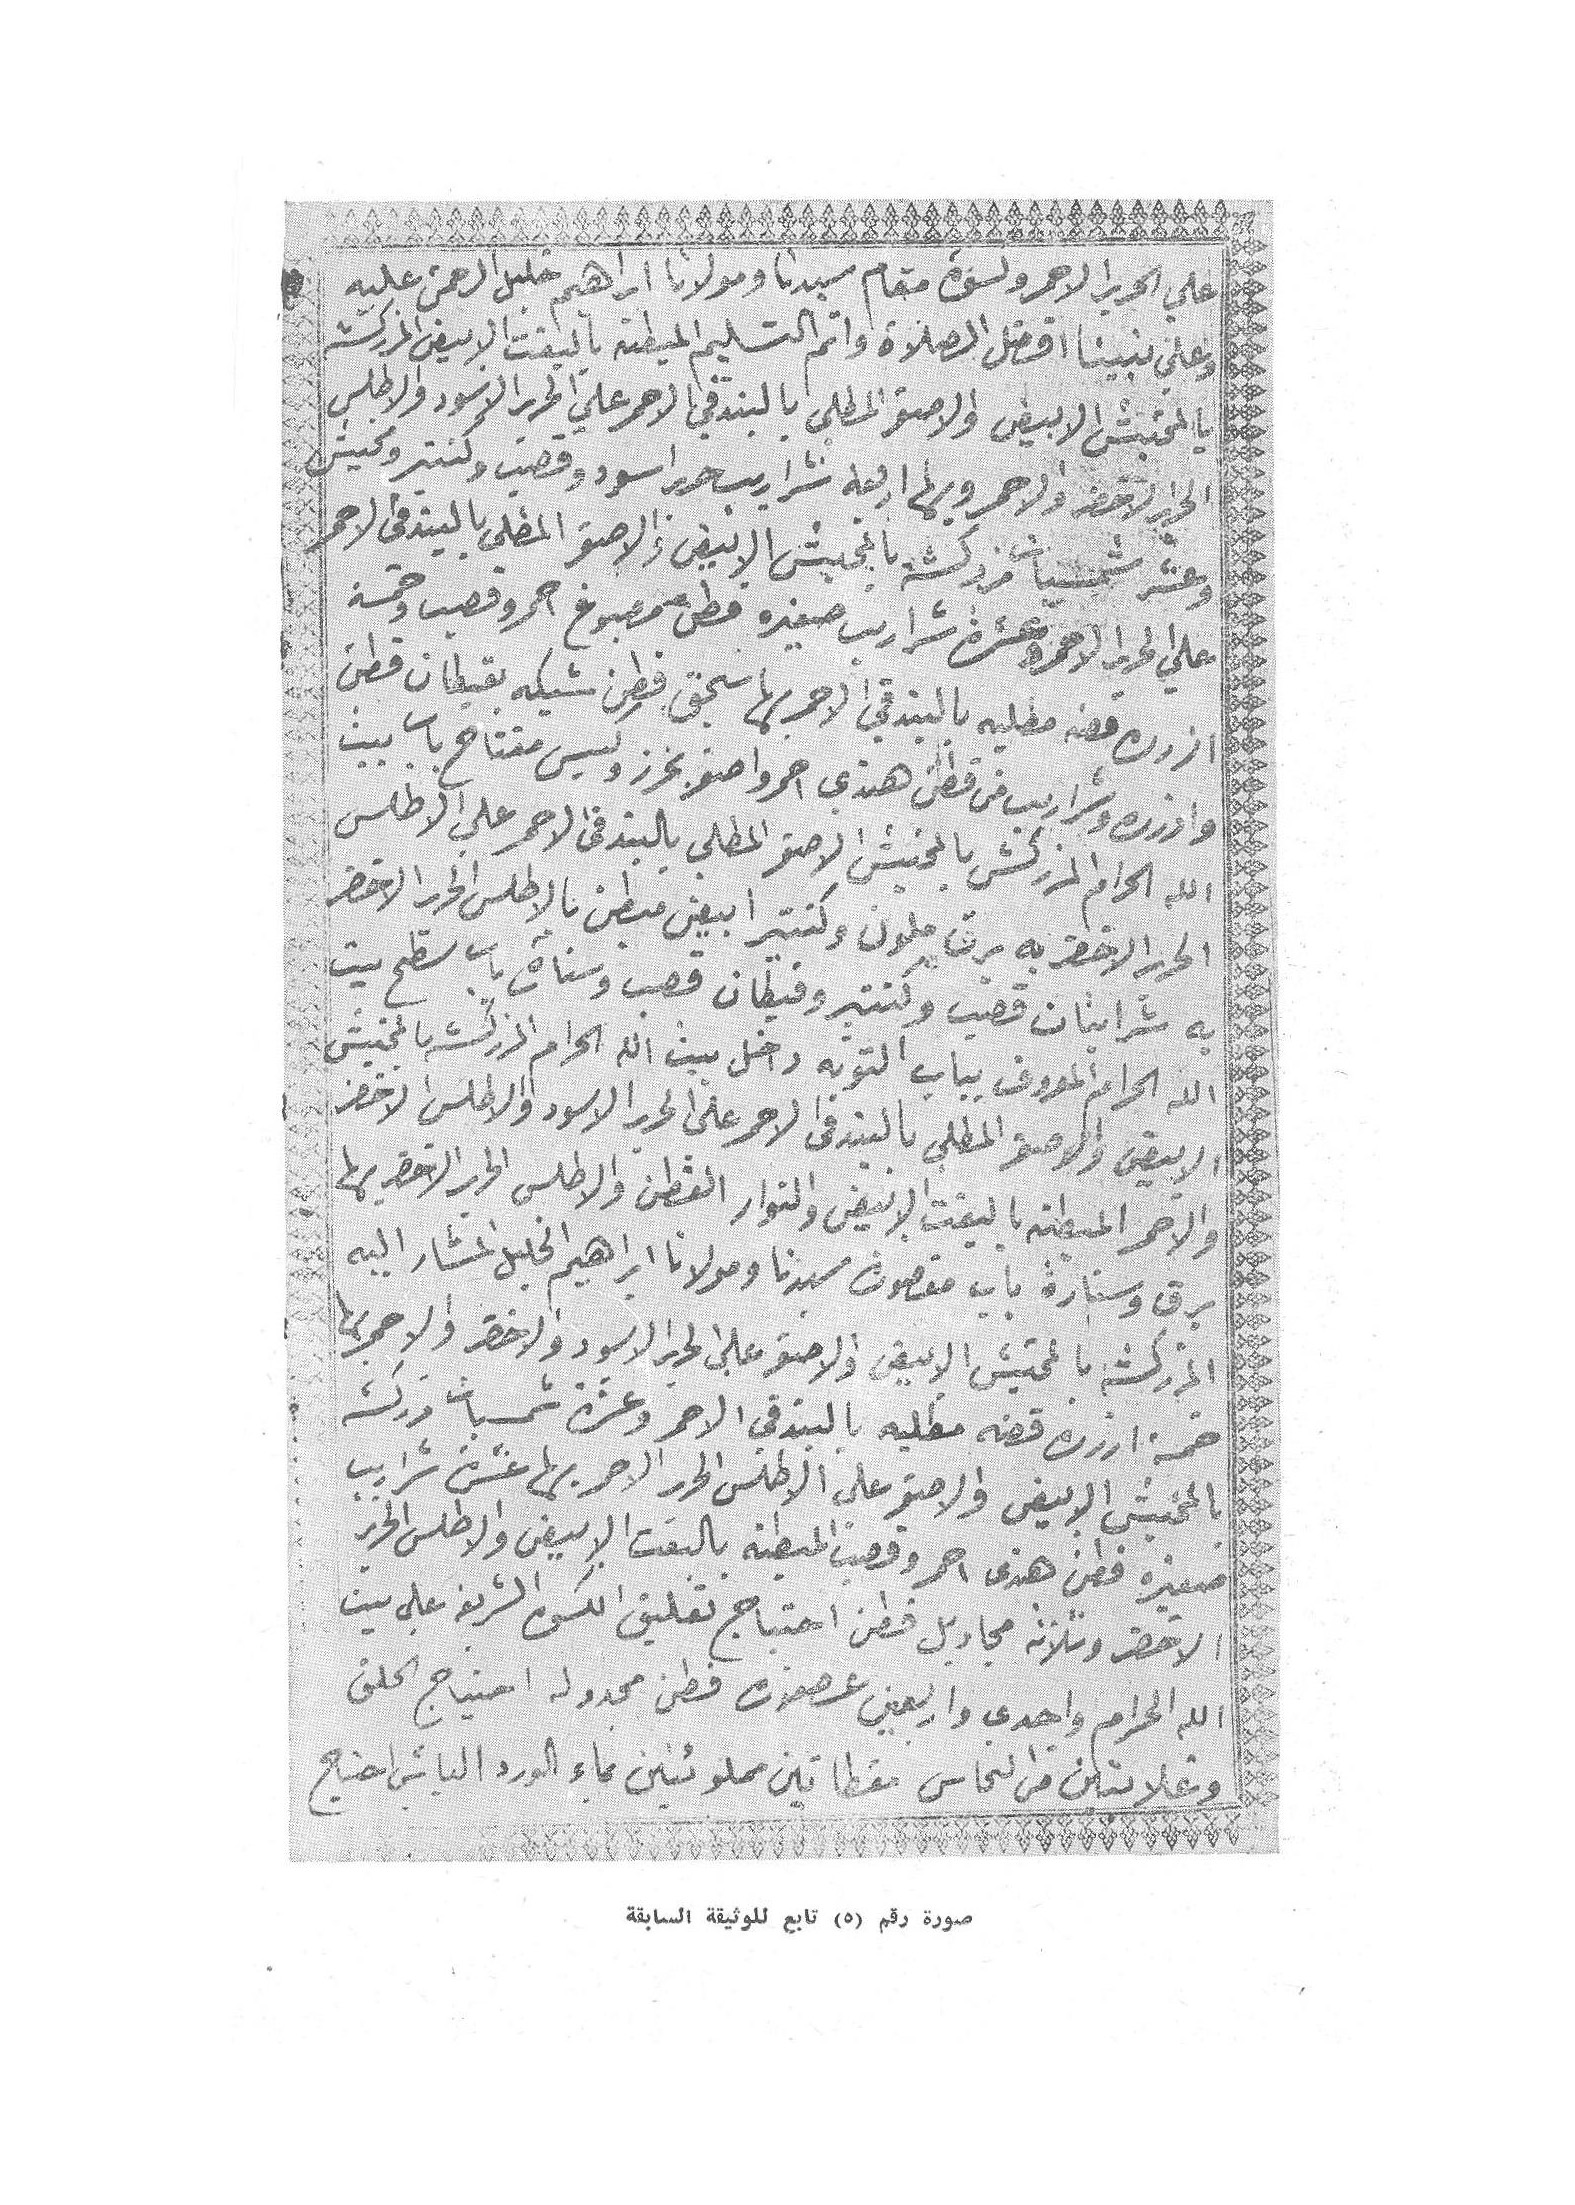 علي الحرير الاحمر وكسوة مقام سيدنا ومولانا ابراهيم خليل الرحمن عليه
وعلي نبينا افضل الصلاة واتم التسليم المبطنه بالبفت الابيض المزركشه
بالمخيش الابيض والاصفر المطلي بالبندقي الاحمر علي الحرير الاسود والاطلس
الحرير الاخضر والاحمر وبها اربعة شراريب حرير اسود وقصب وكنتير ومخيش
وعشر شمسيات مزركشة بالمخيش الابيض والاصفر المطلي بالبندقي الاحمر
علي الحرير الاحمر وعشرة شراريب صغيره قطن مصبوغ احمر وقصب وخمسة
ازرره فضه مطليه بالبندقي الاحمر بها سجق قطن شبيكه بقيطان قطن
وازرره وشراريب من قطن هندي احمر واصفر بخرز وكيس مفتاح باب بيت
الله الحرام المزركش بالمخيش الاصفر المطلي بالبندقي الاحمر علي الاطلس
الحرير الاخضر به برق ملون وكنتير ابيض مبطن بالاطلس الحرير الاخضر
به شرابتان قصب وكنتير وقيطان قصب وستارة باب سطح بيت
الله الحرام المعروف بباب التوبه داخل بيت الله الحرام المزركشه بالمخيش
الابيض والاصفر المطلي بالبندقي الاحمر علي الحرير الاسود والاطلس الاخضر
والاحمر المبطنه بالبفت الابيض والنوار القطن والاطلس الحرير الاخضر بها
برق وستارة باب مقصورة سيدنا ومولانا ابراهيم الخليل المشار اليه
المزركشه بالمخيش الابيض والاصفر علي الحرير الاسود والاخضر والاحمر بها
خمسة ازرره فضه مطليه بالبندقي الاحمر وعشرة شمسيات مزركشه
بالمخيش الابيض والاصفر علي الاطلس الحرير الاحمر بها عشرة شراريب
صغيره قطن هندي احمر وقصب المبطنه بالبفت الابيض والاطلس الحرير
الاخضر وثلاثة مجاديل قطن احتياج تعليق الكسوة الشريفه علي بيت
الله الحرام واحدي واربعين عصفوره قطن مجدوله احتياج الحلق
وغلايتين من النحاس مغطاتين مملوئتين بماء الورد الباش احتياج
صورة رقم (٥) تابع للوثيقة السابقة